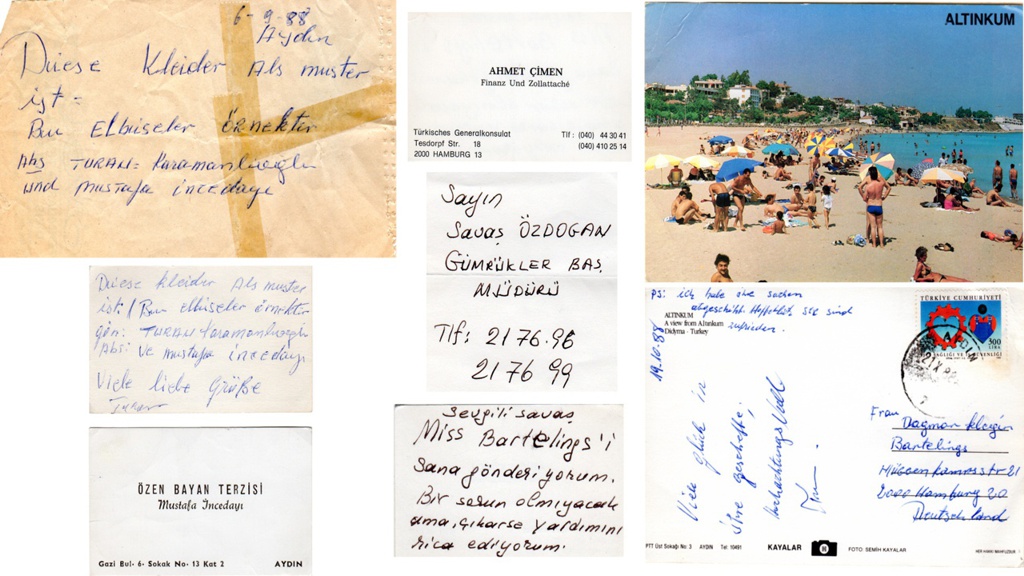 6-9-88
Aydın
Diese Kleider Als muster
ist =
Bu Elbiseler örnektir
Abs TURAN = Karamanlıoglu
und mustafa incedayı
Diese kleider Als muster
ist / Bu elbiseler örnektir
gön: TURAN Karamanlıoglu
Abs: Ve mustafa incedayı
Viele liebe Grüße
Turan
ÖZEN BAYAN TERZİSİ
Mustafa İncedayı
Gazi Bul- 6- Sokak No- 13 Kat 2
AYDIN
AHMET ÇİMEN
Finanz Und Zollattaché
Türkisches Generalkonsulat
Tesdorpf Str. 18
2000 HAMBURG 13
Tlf: (040) 44 30 41
(040) 410 25 14
Sayın
Savaş ÖZDOGAN
GÜMRÜKLER BAŞ
MÜDÜRÜ
Tlf: 21 76.96
21 76 99
Sevgili Savaş
Miss Bartelings'i
Sana gönderiyorum.
Bir sorun olmıyacak
ama, çıkarse yardımını
rica ediyorum.
ALTINKUM
PS: ich habe ihre sachen
abgeschickt. Hoffentlich, sie sind
zufrieden.
ALTINKUM
A view from Altınkum
Didyma - Turkey
19.10.88
Viele glück in
ihre geschefte.
hochachtungsvoll
TÜRKİYE CUMHURİYETİ
300
LİRA
Frau
Dagmar
Bartelings
str 21
2000 Hamburg 20
Deutschland
PTT Üst Sokağı No: 3 AYDIN Tel: 10491
KAYALAR
FOTO: SEMİH KAYALAR
HER HAKKI MAHFUZDUR